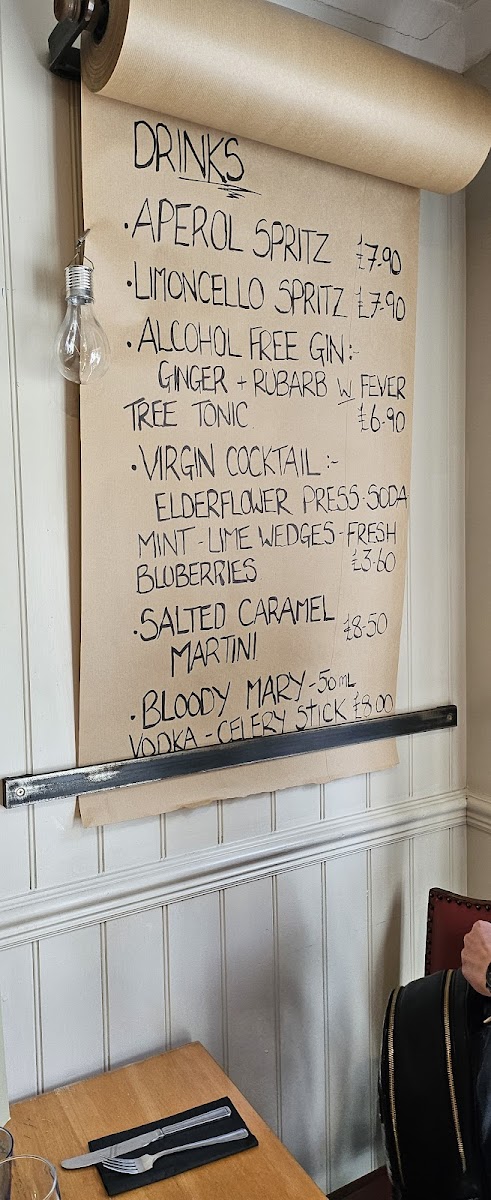 DRINKS
·APEROL SPRITZ £7-90
·LIMONCELLO SPRITZ £7-90
·ALCOHOL FREE GIN:-
GINGER + RUBARB W FEVER
TREE TONIC £6-90
·VIRGIN COCKTAIL:-
ELDERFLOWER PRESS-SODA
MINT-LIME WEDGES-FRESH
BLUBERRIES £3-60
·SALTED CARAMEL £8-50
MARTINI
·BLOODY MARY-50ML
VODKA-CELERY STICK £8-00